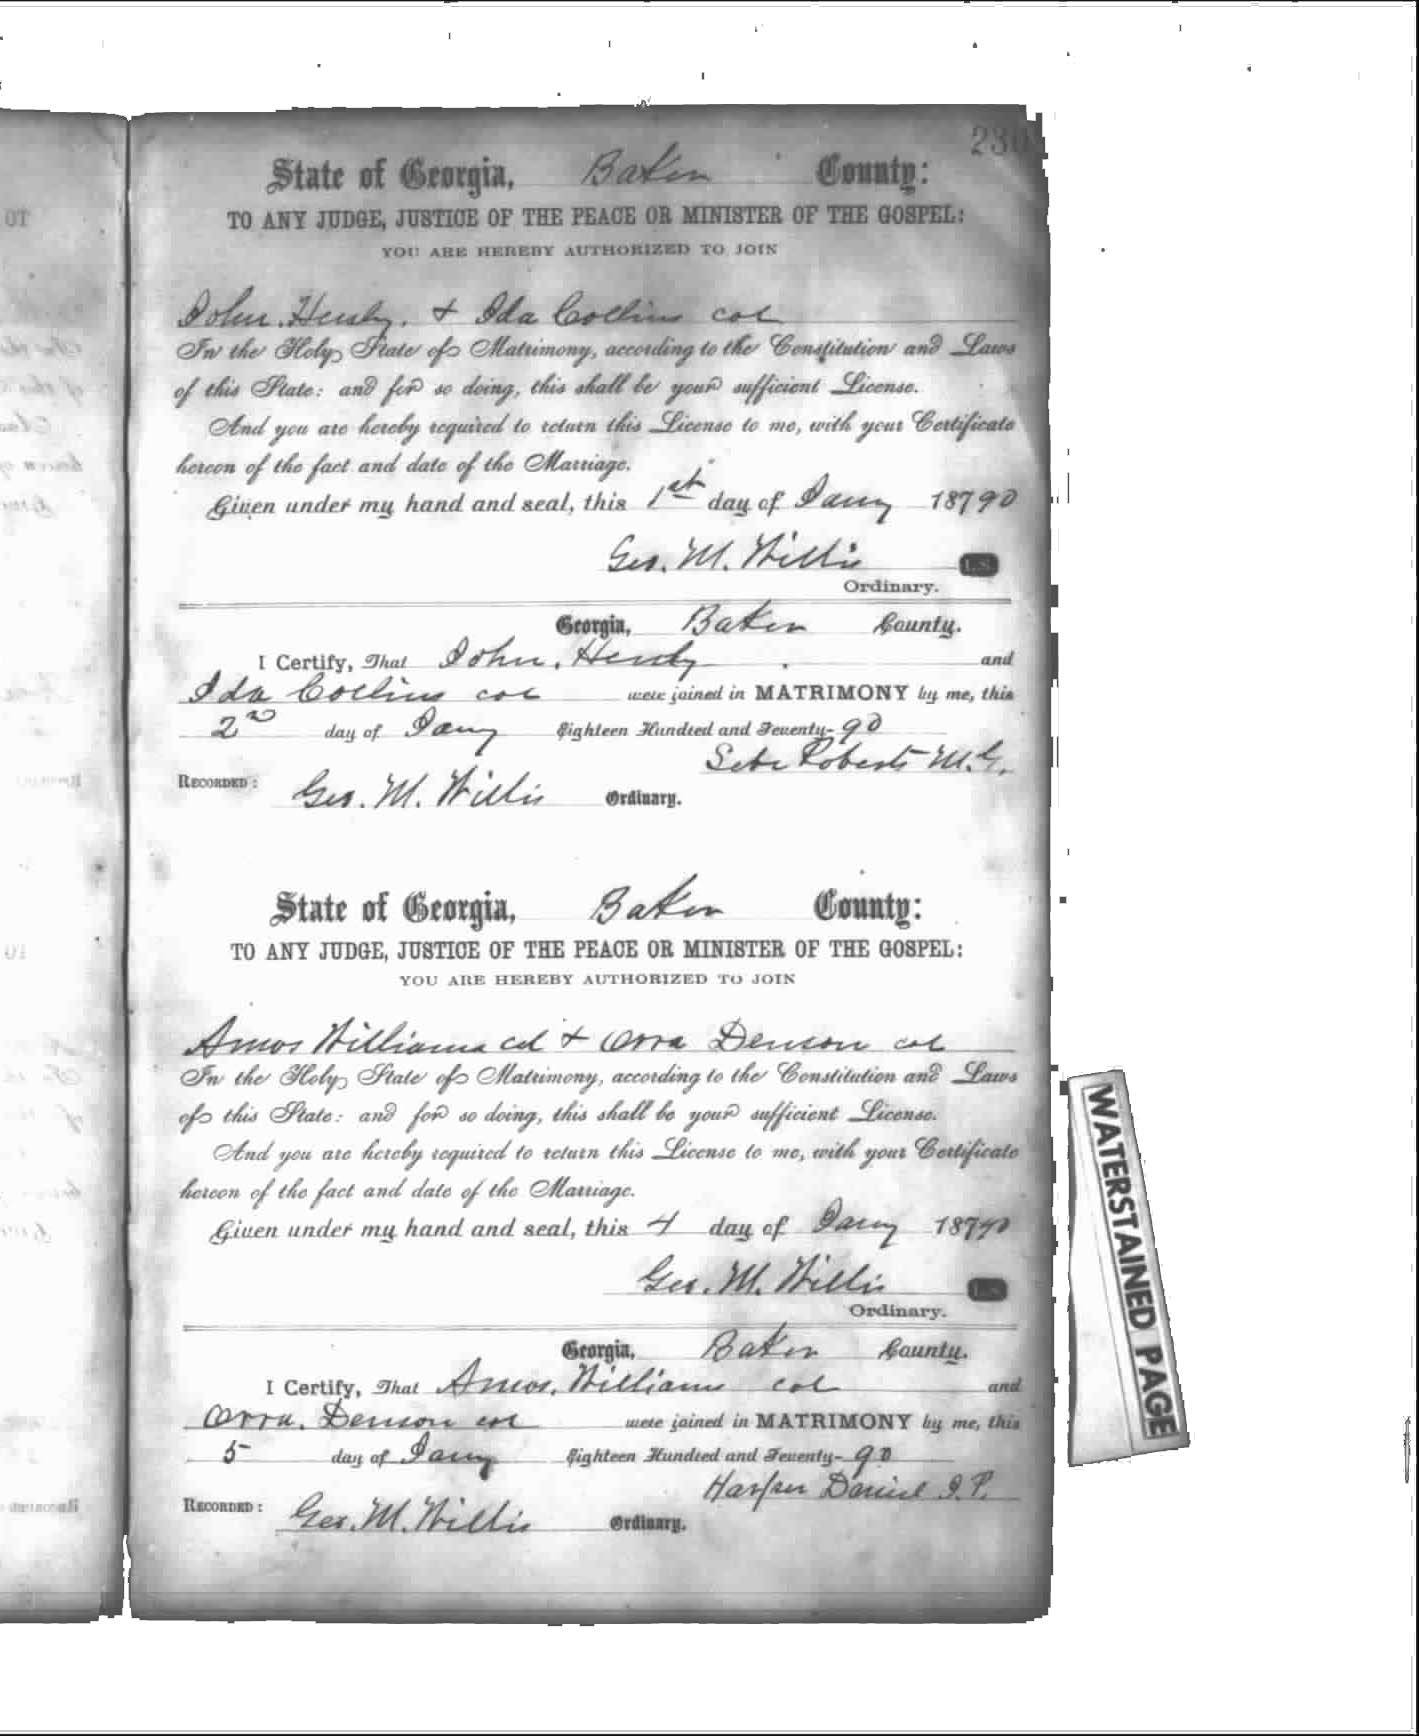 230
State of Georgia, Baker County:
TO ANY JUDGE, JUSTICE OF THE PEACE OR MINISTER OF THE GOSPEL:
YOU ARE HEREBY AUTHORIZED TO JOIN
John. & Ida Collins col
In the Holy State of Matrimony, according to the Constitution and Laws
of this State: and for so doing, this shall be your sufficient License.
And you are hereby required to return this License to me, with your Certificate
hereon of the fact and date of the Marriage.
Given under my hand and seal, this 1st day of Jany 18790
Geo. M. Willis L.S.
Ordinary.
Georgia, Baker County.
I Certify, That John. and
Ida Collins col were joined in MATRIMONY by me, this
2nd day of Jany Eighteen Hundred and Seventy-90
Roberts M.G.
RECORDED: Geo. M. Willis Ordinary.
State of Georgia, Baker County:
TO ANY JUDGE, JUSTICE OF THE PEACE OR MINISTER OF THE GOSPEL:
YOU ARE HEREBY AUTHORIZED TO JOIN
Amos Williams col & Orra Denson col
In the Holy State of Matrimony, according to the Constitution and Laws
of this State: and for so doing, this shall be your sufficient License.
And you are hereby required to return this License to me, with your Certificate
hereon of the fact and date of the Marriage.
Given under my hand and seal, this 4 day of Jany 18790
Geo. M. Willis L.S.
Ordinary.
Georgia, Baker County.
I Certify, That Amos. Williams col and
Orra. Denson col were joined in MATRIMONY by me, this
5 day of Jany Eighteen Hundred and Seventy-90
Harper Daniel J.P.
RECORDED: Geo. M. Willis Ordinary.
WATERSTAINED PAGE